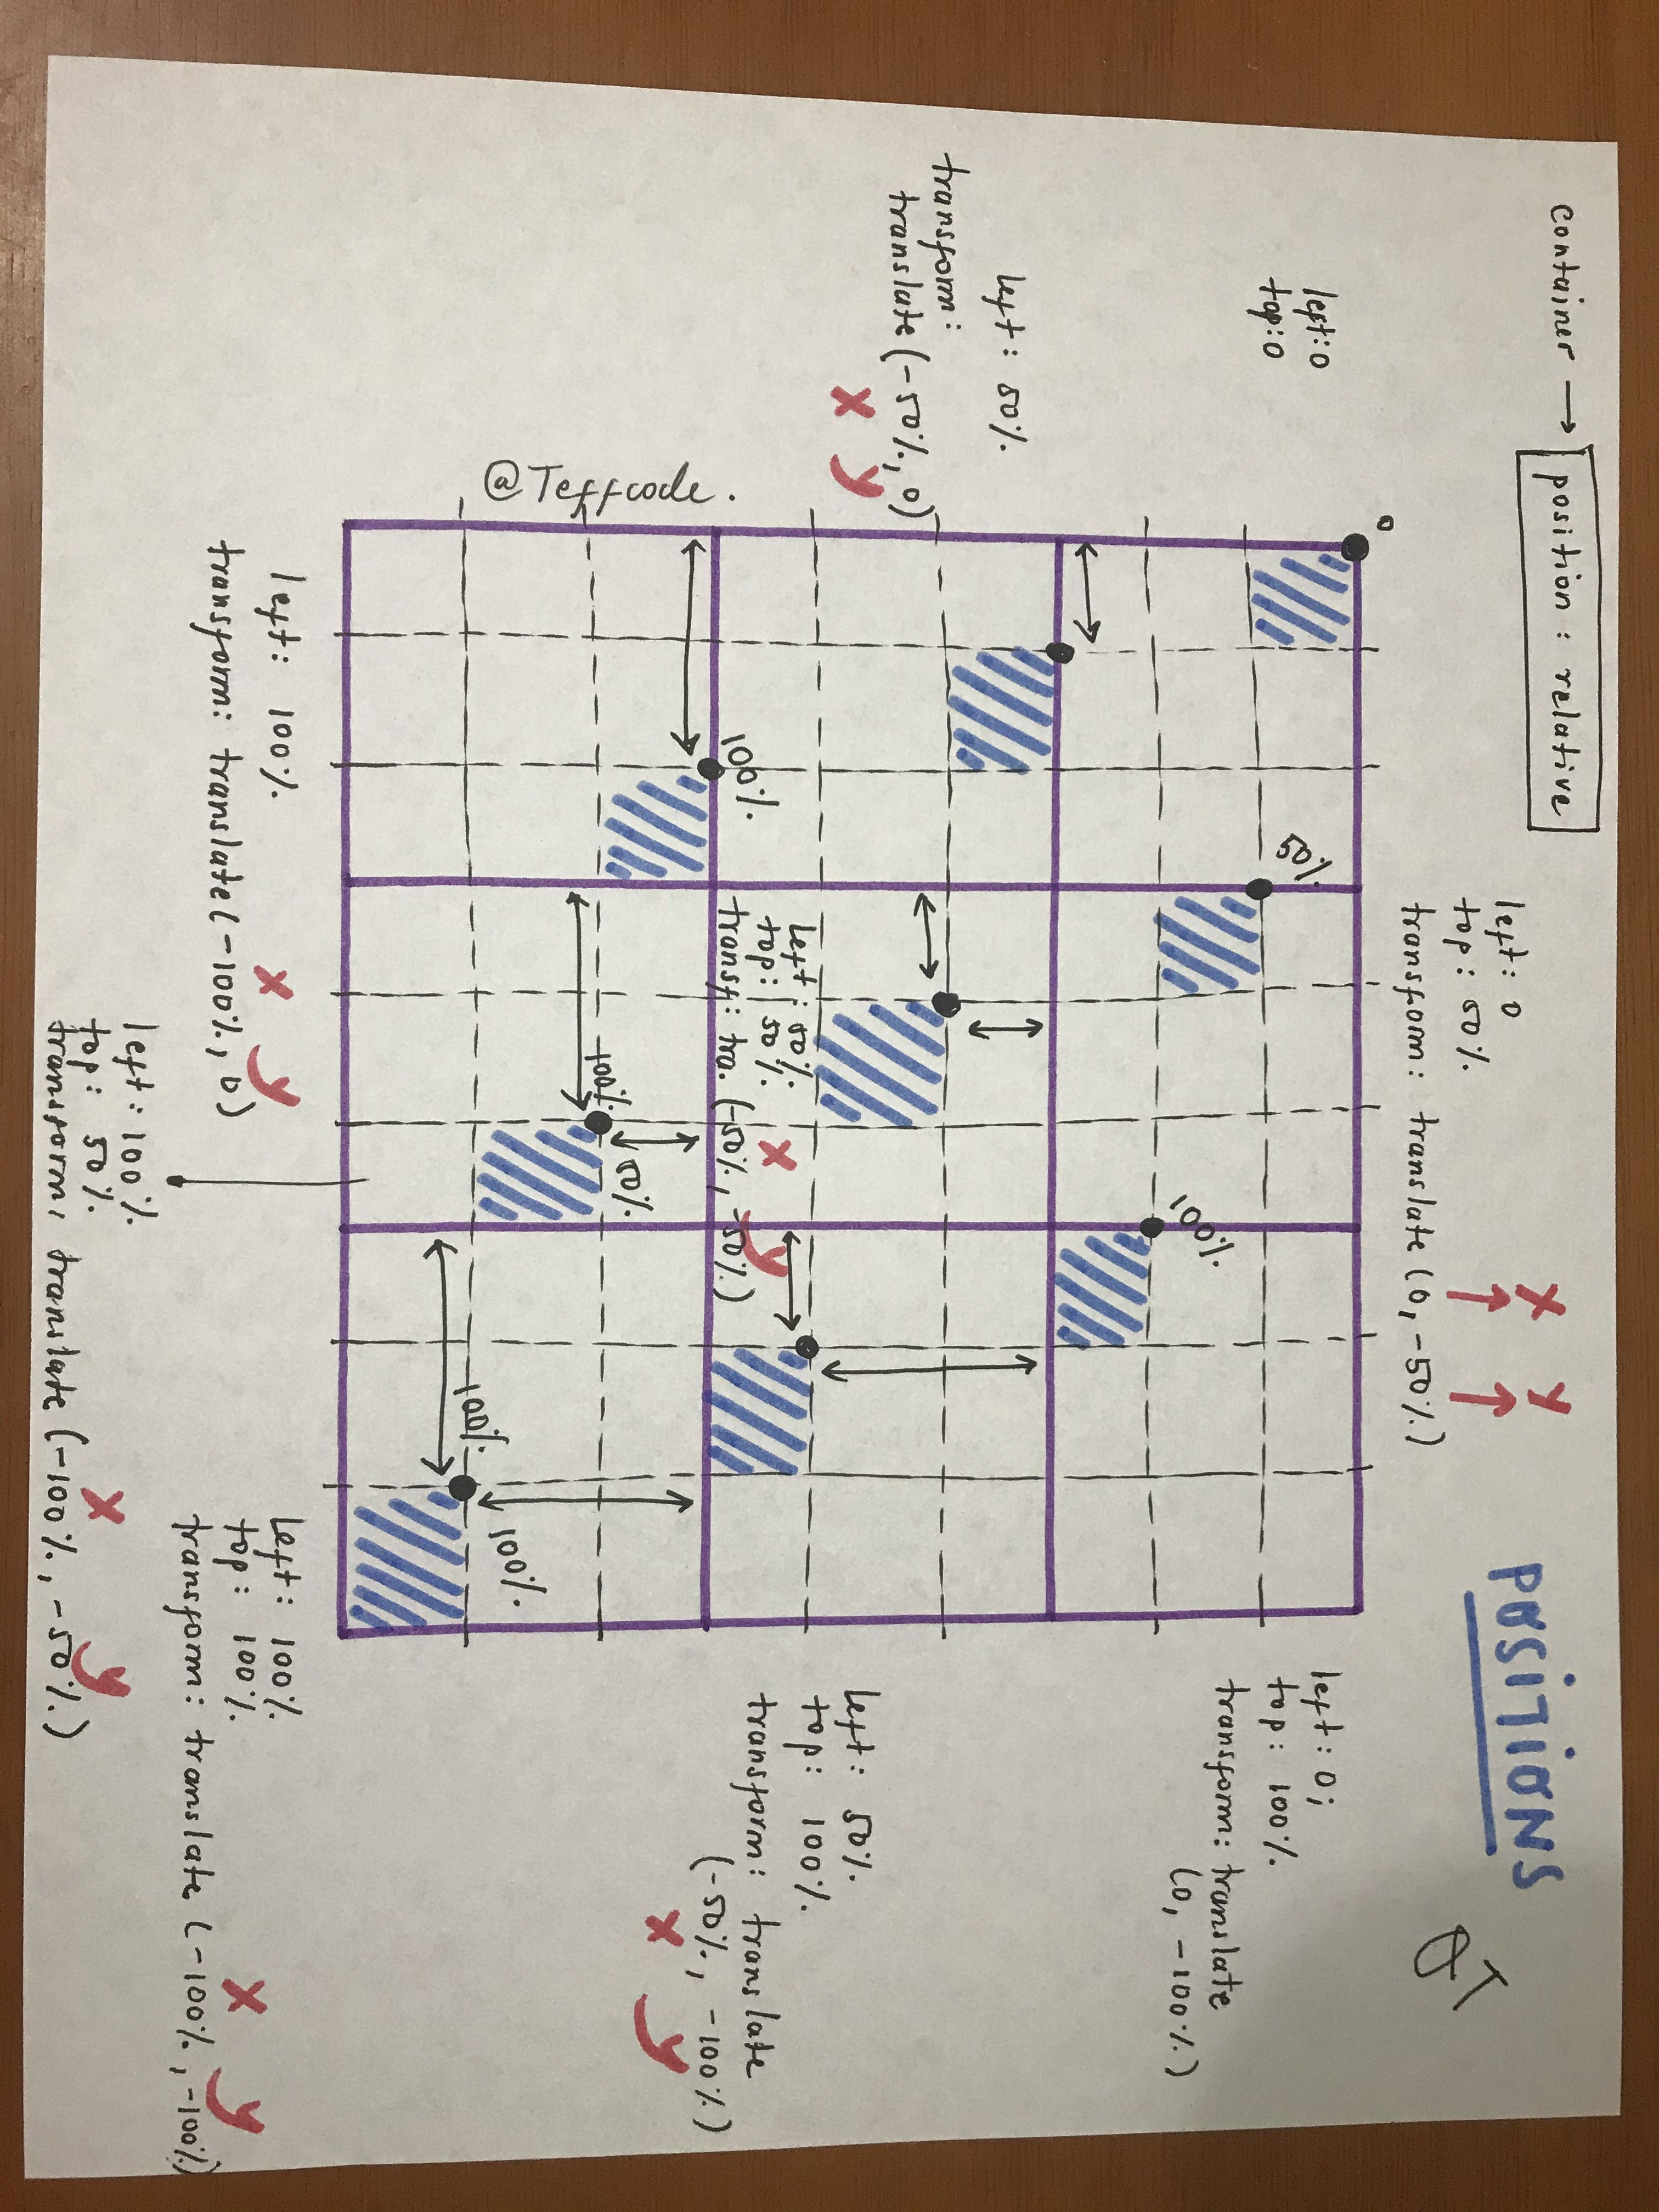 Container → position : relative
POSITIONS
left: 0
top: 50%
transform: translate (0, -50%)
x y
left: 0
top: 0
0
50%
100%
left: 0;
top: 100%
transform: translate
(0, -100%)
left: 50%
transform:
translate (-50%, 0)
x y
left: 50%
top: 50%
transf: tra. (-50%, -50%)
x y
left: 50%
top: 100%
transform: translate
(-50%, -100%)
x y
100%
100%
50%
100%
100%
@Teffcode.
left: 100%
transform: translate (-100%, 0)
x y
left: 100%
top: 50%
transform: translate (-100%, -50%)
x y
left: 100%
top: 100%
transform: translate (-100%, -100%)
x y